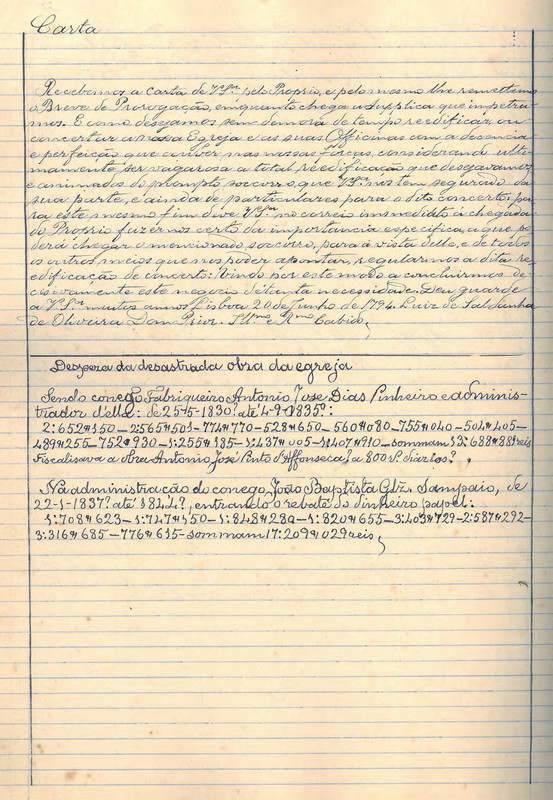 Carta
Recebemos a carta de V.Sria pelo Proprio, e pelo mesmo lhe remettemos
o Breve de Prorogação, emquanto chega a Supplica que impetra-
mos. E como desejamos sem demora de tempo reedificar, ou
concertar a nossa Egreja e as suas Officinas com a decencia
e perfeição que couber nas nossas forças, considerando ulti-
mamente ser vagarosa a total reedificação que desejavamos
e animados do prompto soccorro, que V.Sria nos tem segurado da
sua parte, e ainda de particulares para o dito concerto; pa-
ra este mesmo fim dive V.Sria no correio immediato à chegada
do Proprio fazer-nos certo da importancia especifica, a que po-
derá chegar o mencionado soccorro, para á vista delle, e de todos
os outros meios que nos poder apontar, regularmos a dita re-
edificação de concerto: Vindo por este modo a concluirmos de-
cisivamente este negocio de tanta necessidade. Deus guarde
a V.Sria muitos annos. Lisboa 20 de Junho de 1794. Luiz de Saldanha
de Oliveira Dom Prior. Ill.mo e R.mo Cabido,
Despeza da desastrada obra da egreja
Sendo conego Fabriqueiro Antonio José Dias Pinheiro e adminis-
trador d'ella: de 25-5-1830? até 4-9-1835?:
2:652#150 - 2:565#501 - 774#770 - 528#650 - 560#080 - 755#040 - 504#405 -
489#255 - 752#930 - 1:255#185 - 1:437#005 - 1:407#910 - sommam 13:688#881 reis
Fiscalisava a obra Antonio José Pinto d'Affonseca? a 800 rs. diarios?
Na administração do conego João Baptista Glz. Sampaio, de
22-1-1837? até 1841?, entrando o rebate do dinheiro papel:
1:708#623 - 1:747#150 - 1:848#280 - 1:820#655 - 3:403#729 - 2:587#292 -
3:316#685 - 776#615 - sommam 17:209#029 reis,